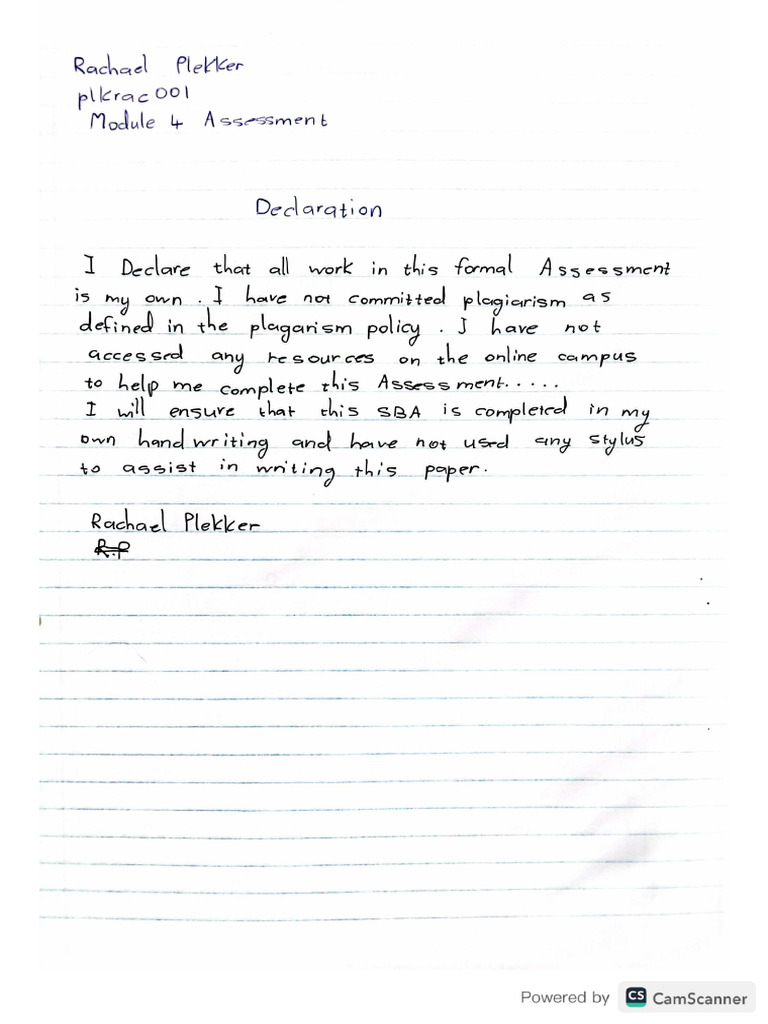 Rachael Plekker
plkrac001
Module 4 Assessment
Declaration
I Declare that all work in this formal Assessment
is my own. I have not committed plagiarism as
defined in the plagarism policy. I have not
accessed any resources on the online campus
to help me complete this Assessment.....
I will ensure that this SBA is completed in my
own handwriting and have not used any stylus
to assist in writing this paper.
Rachael Plekker
R.P
Powered by CS CamScanner